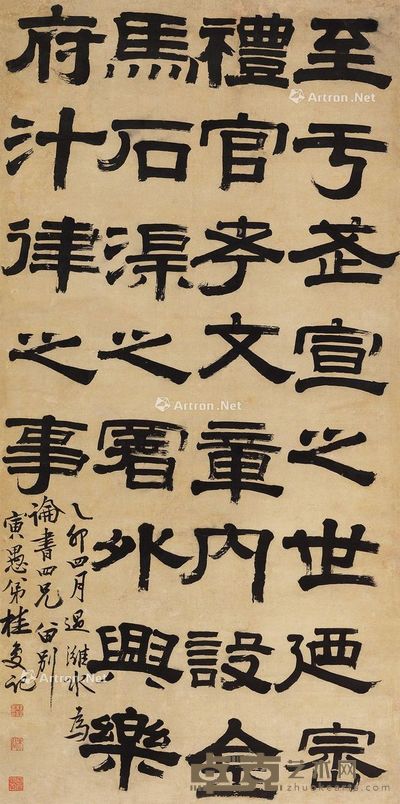 至于武宣之世廼崇
禮官考文章内設金
馬石渠之署外興樂
府汁律之事
乙卯四月過濰水為
論書四兄留别
寅愚弟桂馥記
Artron.Net
Artron.Net
Artron.Net
艺术网